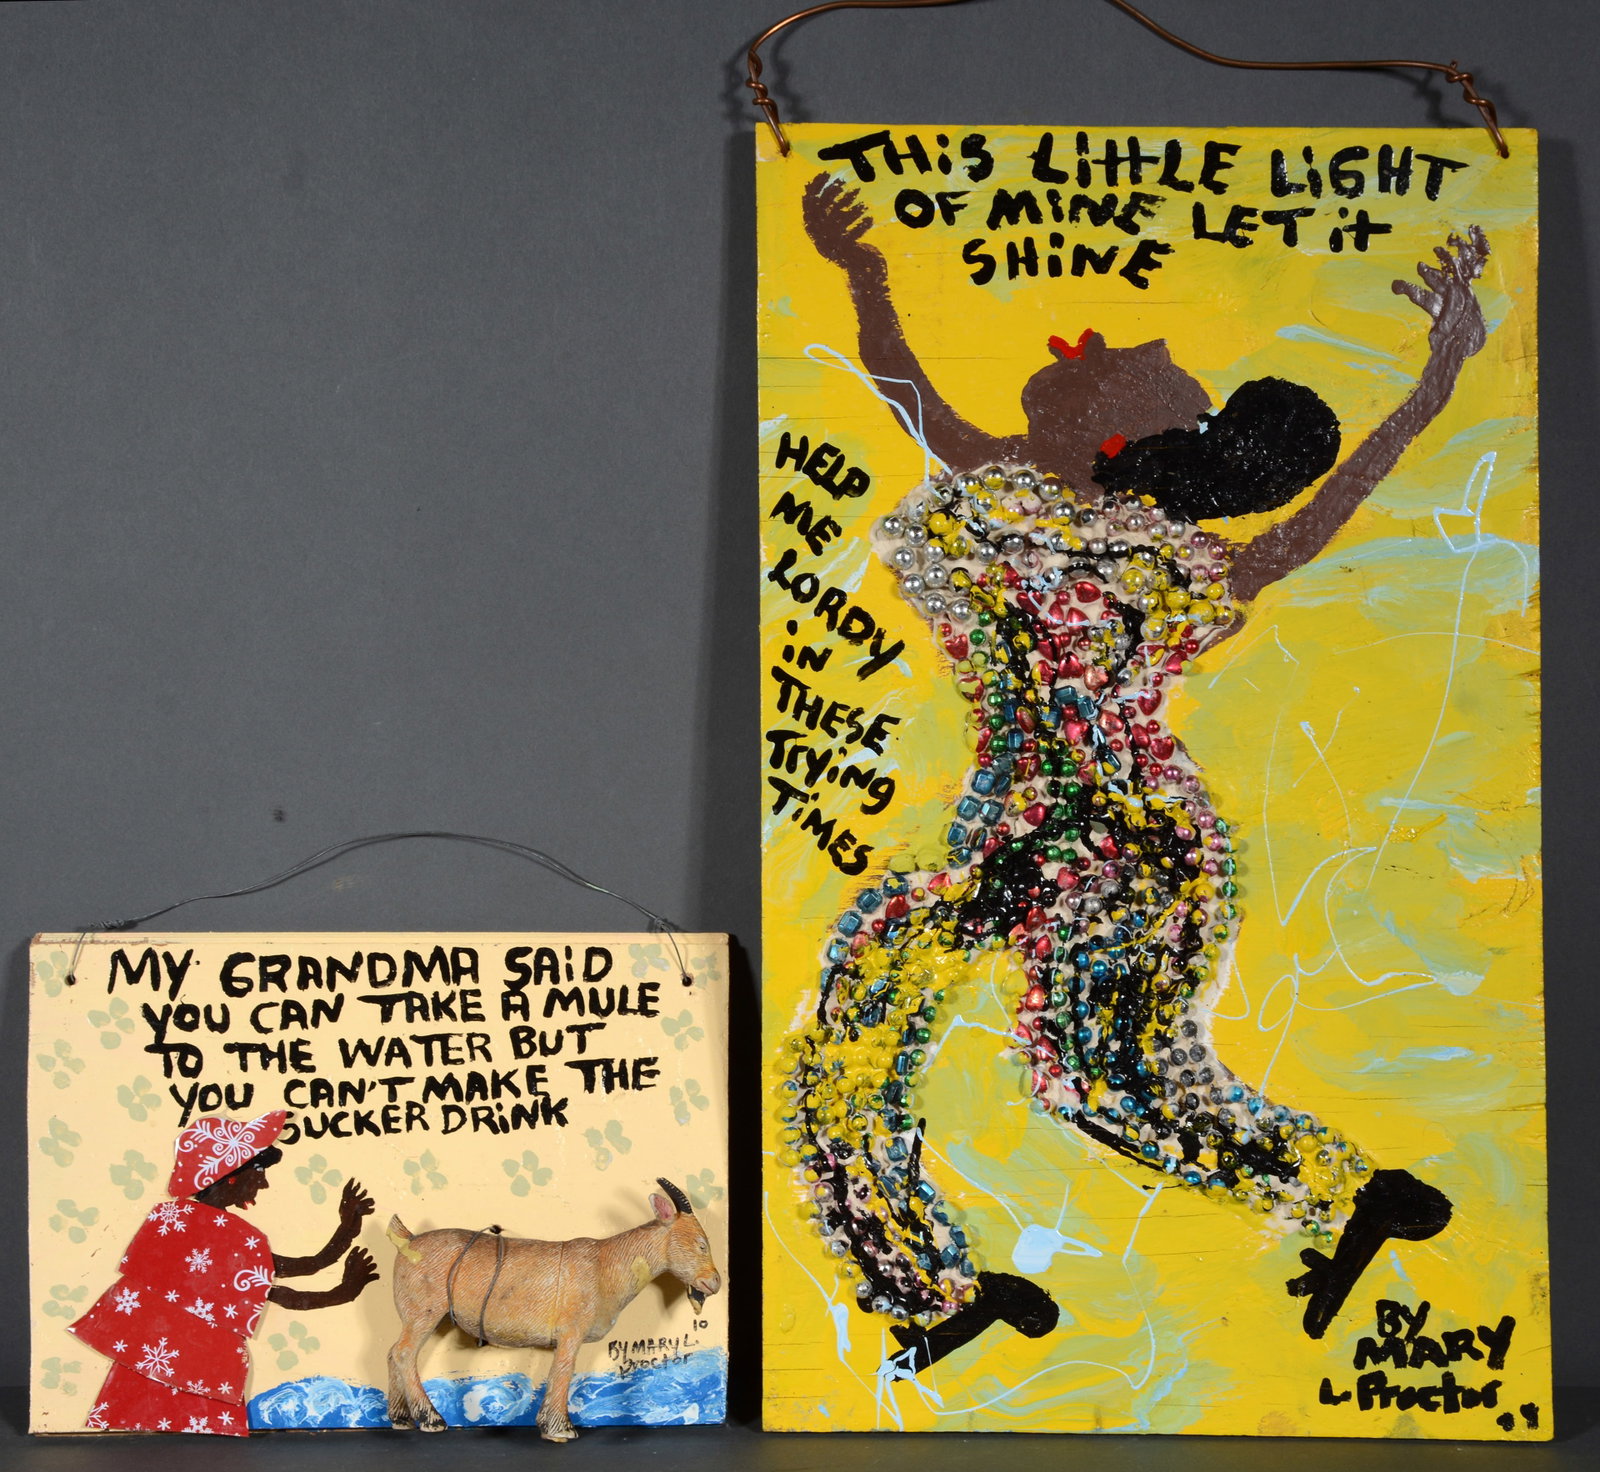 MY GRANDMA SAiD
YOU CAN TAKE A MULE
TO THE WATER BUT
YOU CAN'T MAKE THE
SUCKER DRiNK
10
BY MARY L.
Proctor
THiS LiTTLE LiGHT
OF MiNE LET it
SHiNE
HELP
ME
LORDY
iN
THESE
TRYiNG
TiMES
BY
MARY
L Proctor